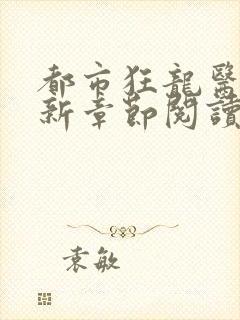 都市狂龍醫
新章節閱讀
袁敏